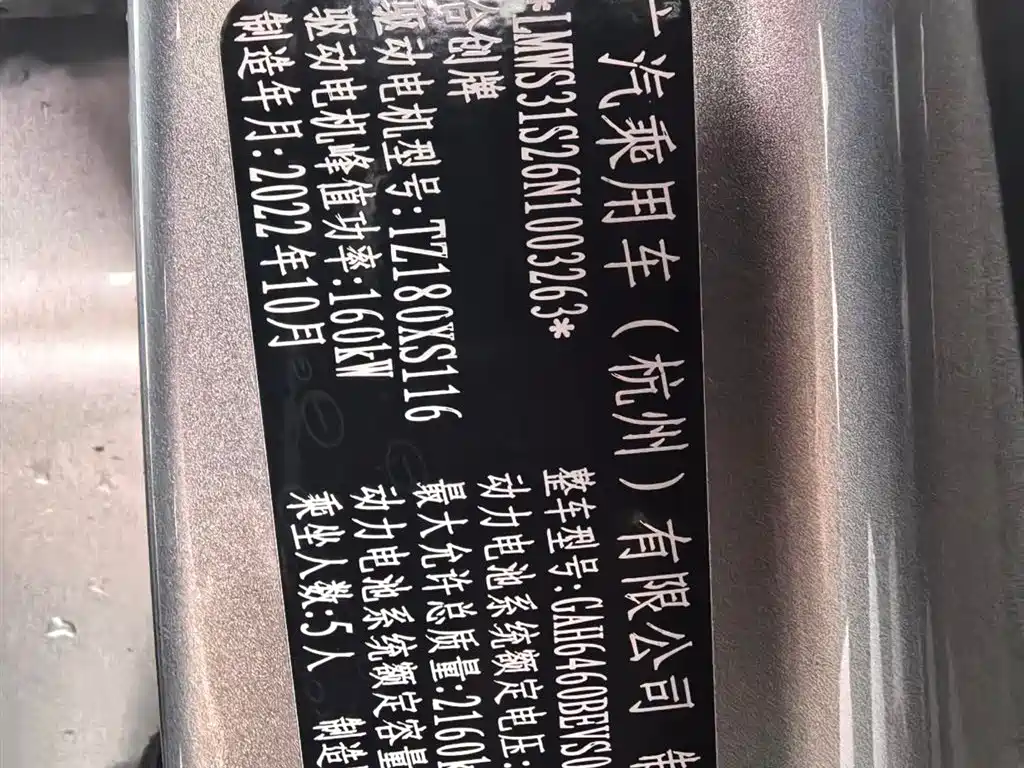 广汽乘用车（杭州）有限公司
*LMWS31S26N1003263* 整车型号:GAH6460BEVS0
合创牌 动力电池系统额定电压:
驱动电机型号:TZ180XS116 最大允许总质量:2160k
驱动电机峰值功率:160kW 动力电池系统额定容量
制造年月:2022年10月 乘坐人数:5人 制造